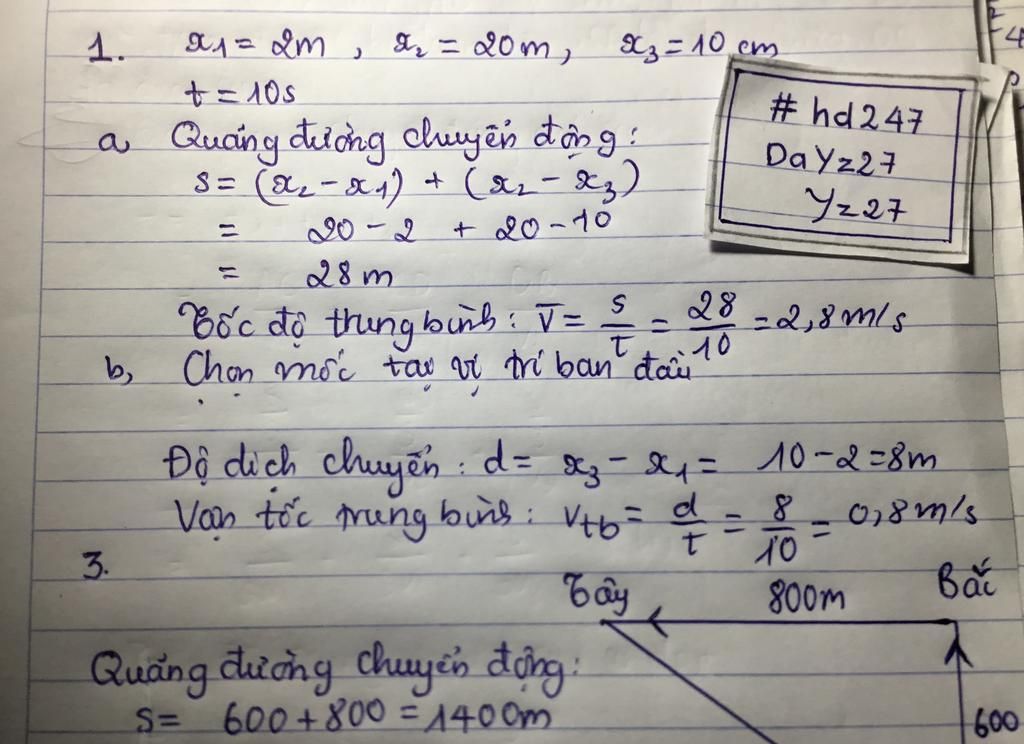 1. x₁ = 2m , x₂ = 20m, x₃ = 10 cm
t = 10s
a, Quãng đường chuyển động:
s = (x₂ - x₁) + (x₂ - x₃)
= 20 - 2 + 20 - 10
= 28m
Tốc độ trung bình: v̅ = s/t = 28/10 = 2,8m/s
b, Chọn mốc tại vị trí ban đầu
Độ dịch chuyển: d = x₃ - x₁ = 10 - 2 = 8m
Vận tốc trung bình: vtb = d/t = 8/10 = 0,8m/s
3.
Tây 800m Bắc
Quãng đường chuyển động:
s = 600 + 800 = 1400m
600
# hd247
DaYz27
Yz27